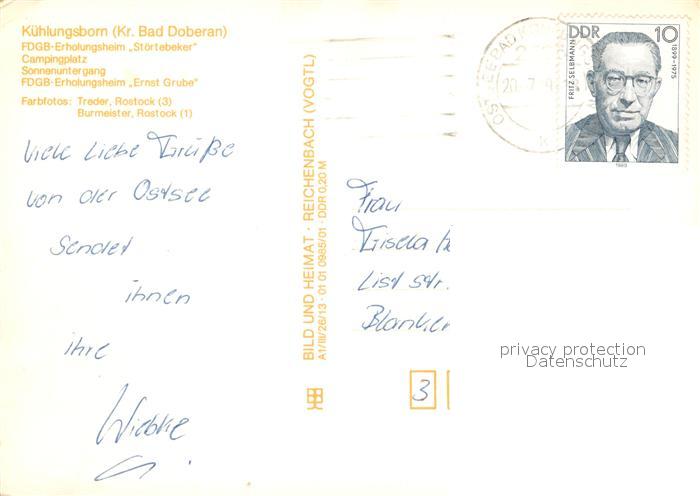 Kühlungsborn (Kr. Bad Doberan)
FDGB-Erholungsheim „Störtebeker"
Campingplatz
Sonnenuntergang
FDGB-Erholungsheim „Ernst Grube"
Farbfotos: Treder, Rostock (3)
Burmeister, Rostock (1)
Viele liebe Grüße
von der Ostsee
sendet
ihnen
ihre
Wiebke
BILD UND HEIMAT · REICHENBACH (VOGTL)
A1/III/26/13 · 01 01 0985/01 · DDR 0,20 M
DDR 10
FRITZ SELBMANN
1899-1975
1989
Frau
Gisela
List str.
Blanken
3
privacy protection
Datenschutz